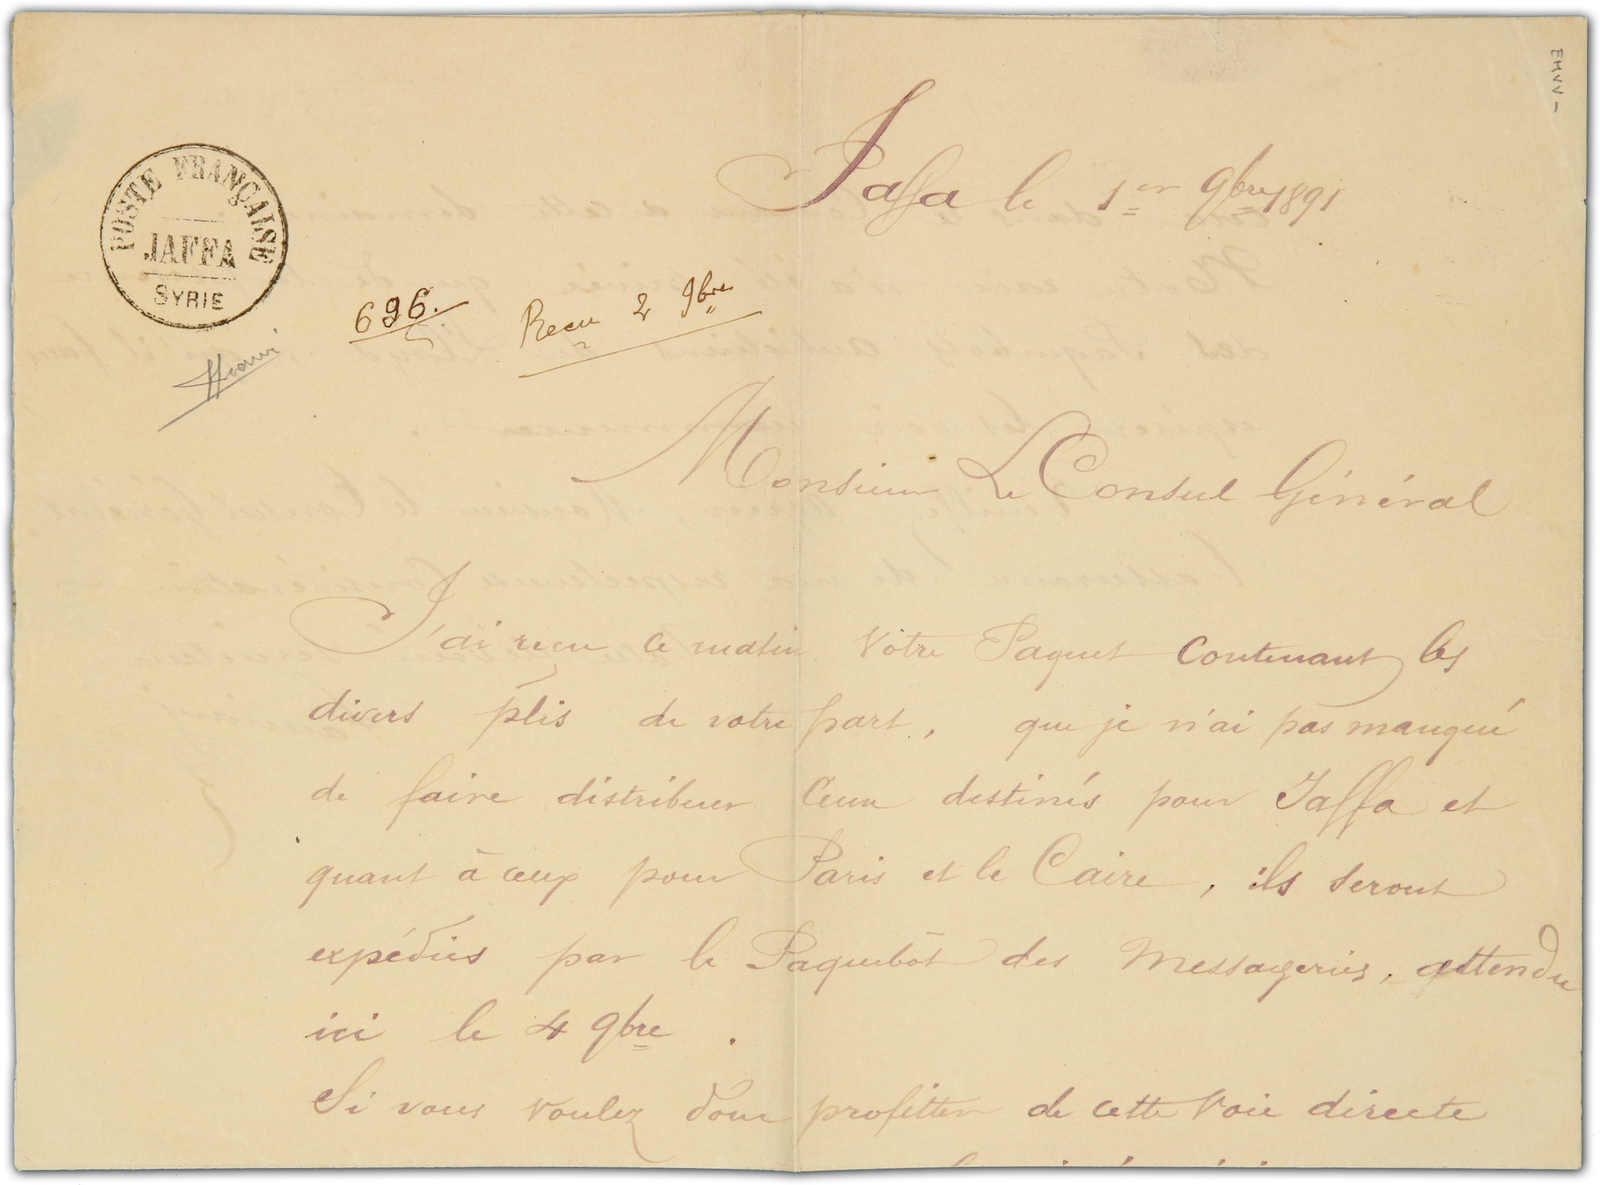 EMVV -
Jaffa le 1er 9bre 1891
POSTE FRANÇAISE
JAFFA
SYRIE
696.
Recu 2 9bre
Monsieur Le Consul Général
J'ai reçu ce matin Votre Paquet contenant les
divers plis de votre part, que je n'ai pas manqué
de faire distribuer Ceux destinés pour Jaffa et
quant à ceux pour Paris et le Caire, ils seront
expédiés par le Paquebôt des Messageries, attendu
ici le 4 9bre.
Si vous voulez donc profitter de cette Voie directe